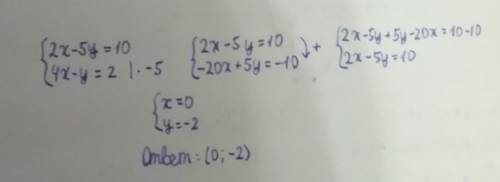 {2x-5y=10
{4x-y=2 |·-5
{2x-5y=10
{-20x+5y=-10 ) +
{2x-5y+5y-20x=10-10
{2x-5y=10
{x=0
{y=-2
Ответ: (0; -2)